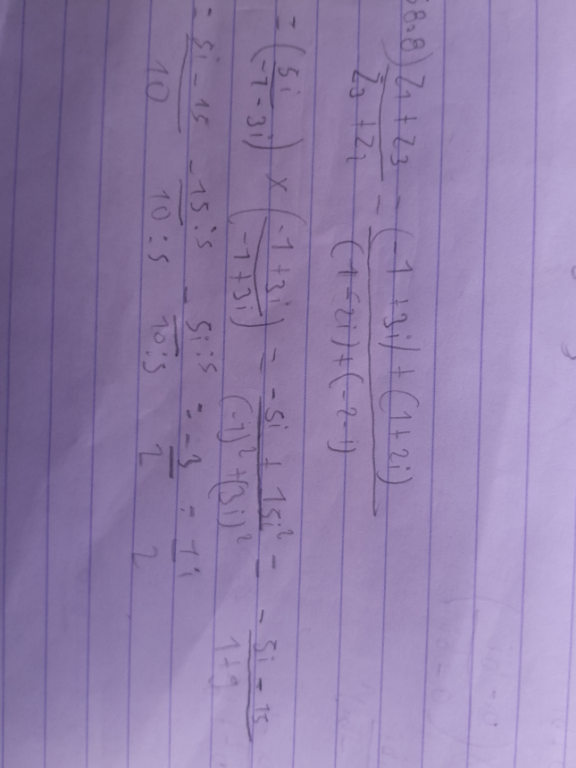 58.8) Z1 + Z3 / Z3 + Z2 = (-1 + 3i) + (1 + 2i) / (1 - 2i) + (-2 - i)
= (5i / -1 - 3i) x (-1 + 3i / -1 + 3i) = -5i + 15i² / (-1)² + (3i)² = - 5i - 15 / 1 + 9
= 5i - 15 / 10 - 15 : 5 / 10 : 5 - 5i : 5 / 10 : 5 = -3 / 2 - 1i / 2